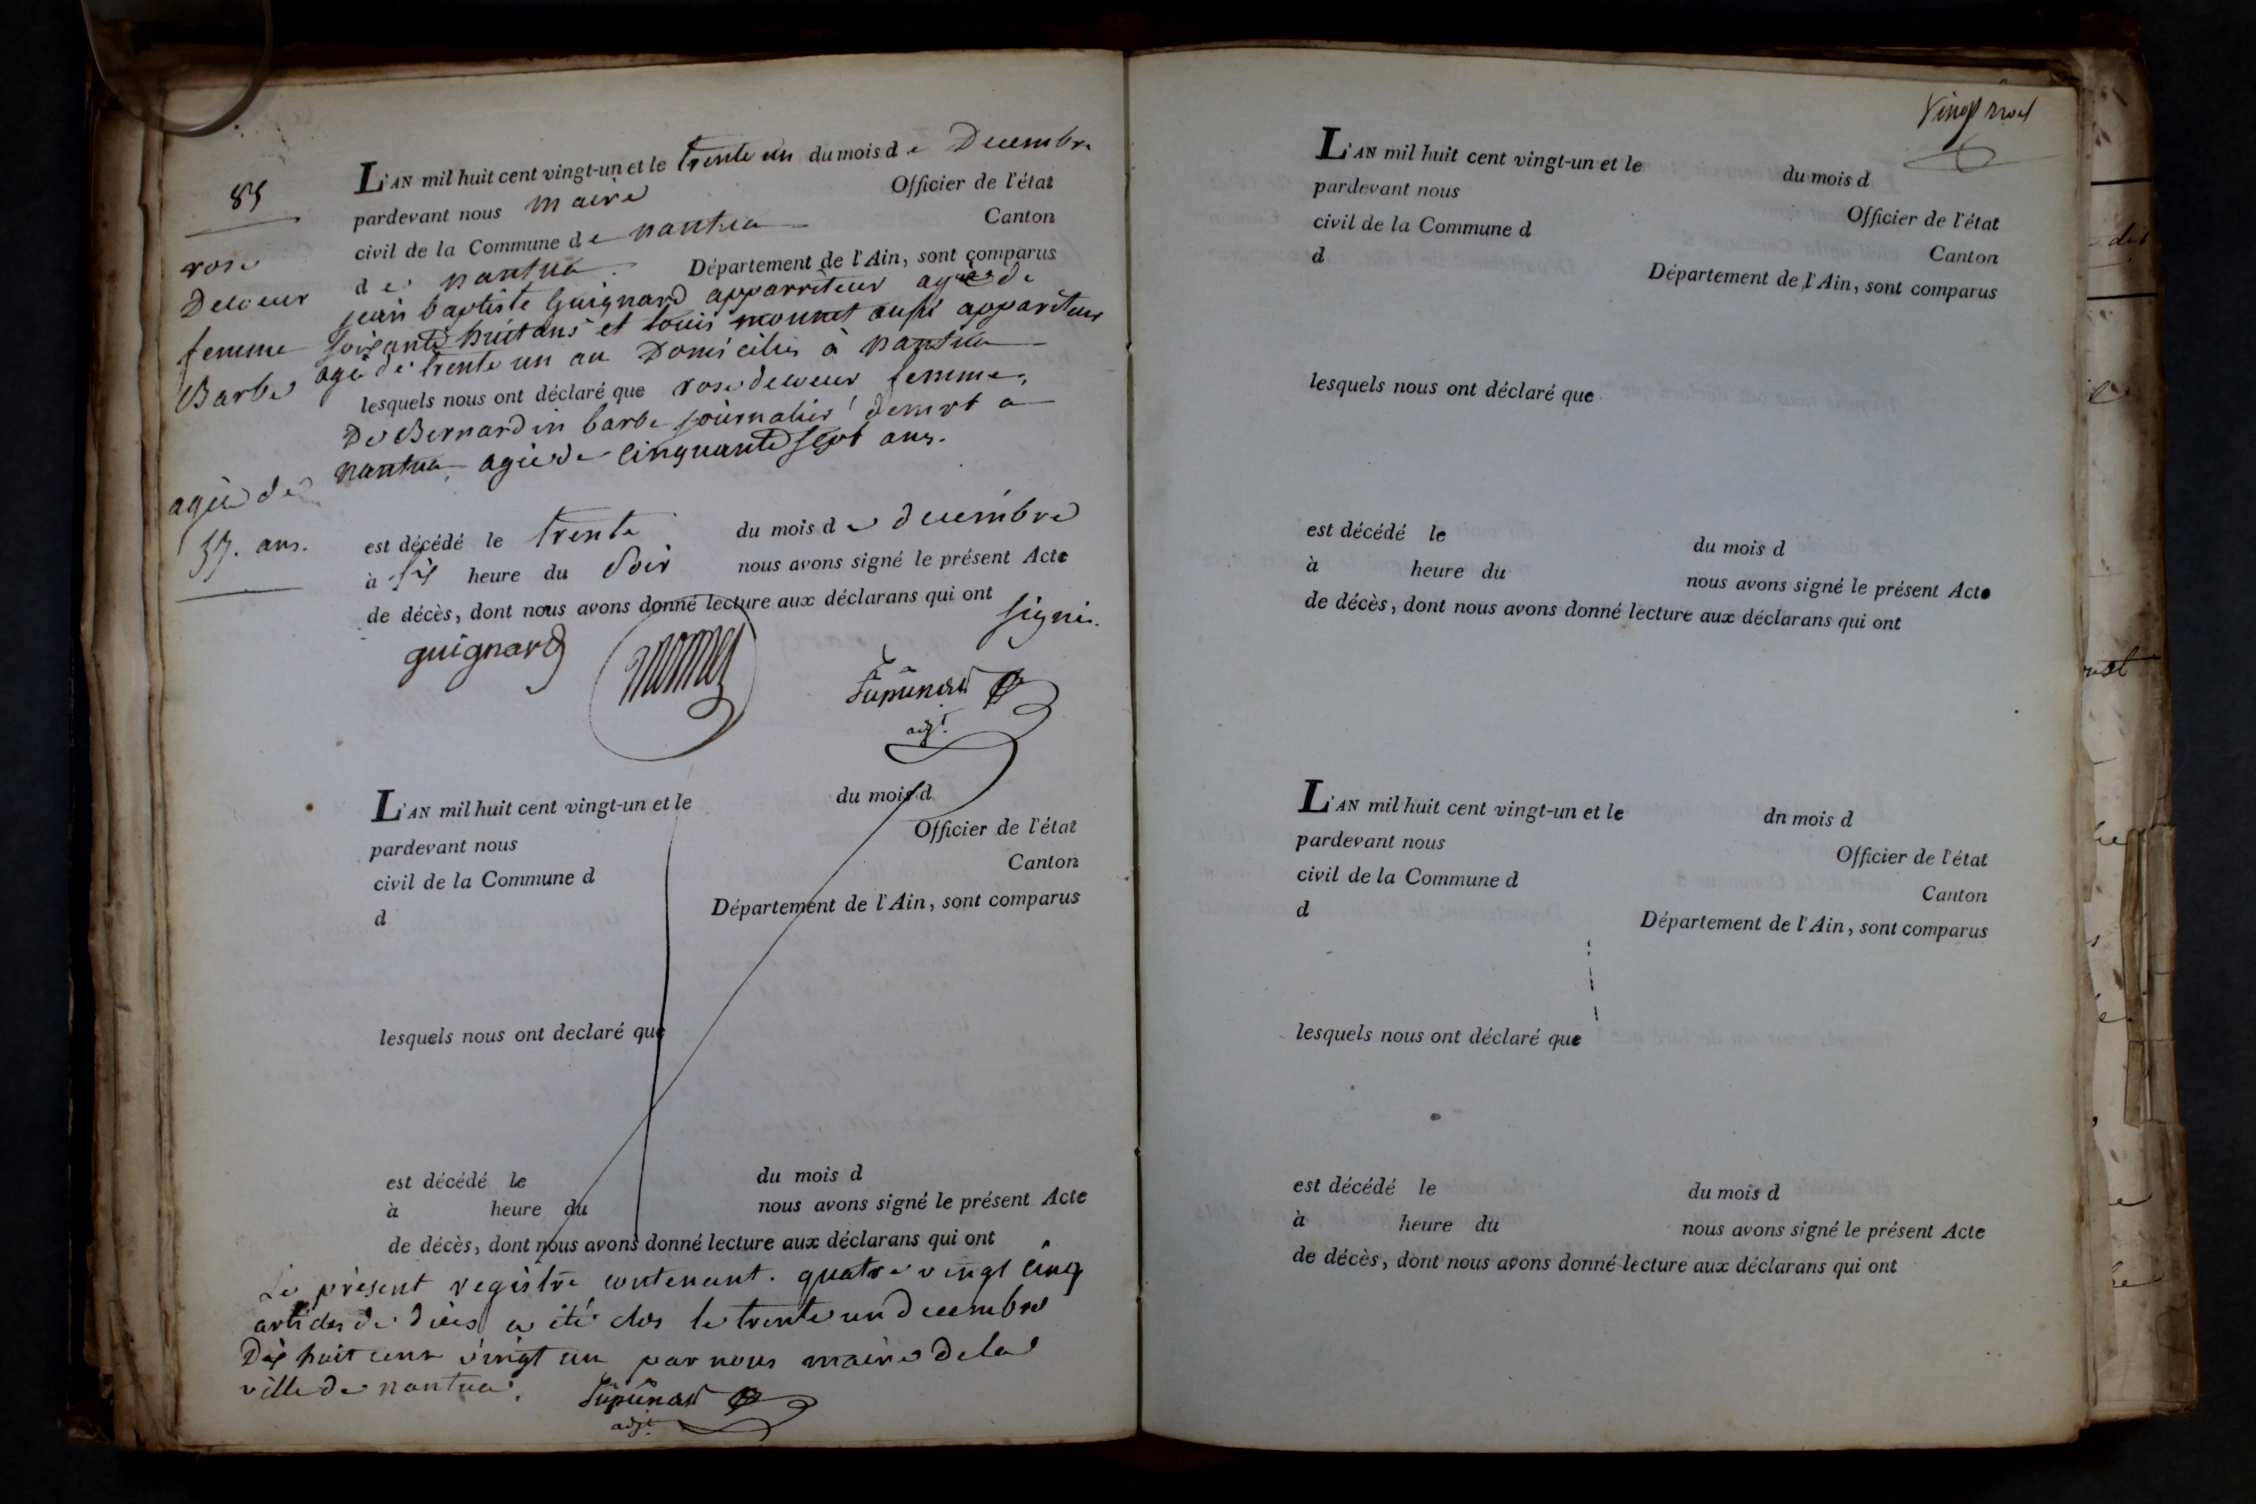 85
rose
Decoeur
femme
Barbe
agée de
57. ans.
L'AN mil huit cent vingt-un et le trente un du mois de Decembre
pardevant nous maire Officier de l'état
civil de la Commune de nantua Canton
de nantua. Département de l'Ain, sont comparus
jean baptiste Guignard apparriteur agé de
soixante huit ans et louis mounet aussi appariteur
agé de trente un an Domicilies à nantua
lesquels nous ont déclaré que rose decoeur femme
De Bernardin barbe journalier demrt a
nantua agée de cinquante sept ans.
est décédé le trente du mois de decembre
à six heure du soir nous avons signé le présent Acte
de décès, dont nous avons donné lecture aux déclarans qui ont signé.
guignard
adjt.
L'AN mil huit cent vingt-un et le du mois d
pardevant nous Officier de l'état
civil de la Commune d Canton
d Département de l'Ain, sont comparus
lesquels nous ont declaré que
est décédé le du mois d
à heure du nous avons signé le présent Acte
de décès, dont nous avons donné lecture aux déclarans qui ont
Le présent registre contenant. quatre vingt cinq
articles de décès a été clos le trente un decembre
Dix huit cent vingt un par nous maire de la
ville de nantua.
adjt.
L'AN mil huit cent vingt-un et le du mois d
pardevant nous Officier de l'état
civil de la Commune d Canton
d Département de l'Ain, sont comparus
lesquels nous ont déclaré que
est décédé le du mois d
à heure du nous avons signé le présent Acte
de décès, dont nous avons donné lecture aux déclarans qui ont
L'AN mil huit cent vingt-un et le dn mois d
pardevant nous Officier de l'état
civil de la Commune d Canton
d Département de l'Ain, sont comparus
lesquels nous ont déclaré que
est décédé le du mois d
à heure du nous avons signé le présent Acte
de décès, dont nous avons donné lecture aux déclarans qui ont